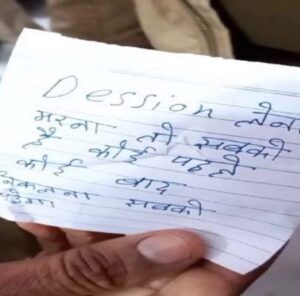 Dession लेना
मरना तो सबको
है कोई पहले
कोई बाद
सबको